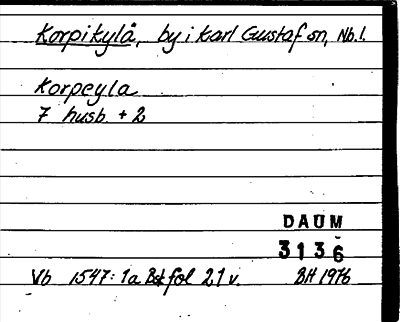 Korpikylå, by i Karl Gustaf sn, Nb.l.
Korpeyla
7 husb. + 2
DAUM
3136
Vb 1547: 1a Bsk fol 21 v. BH 1976